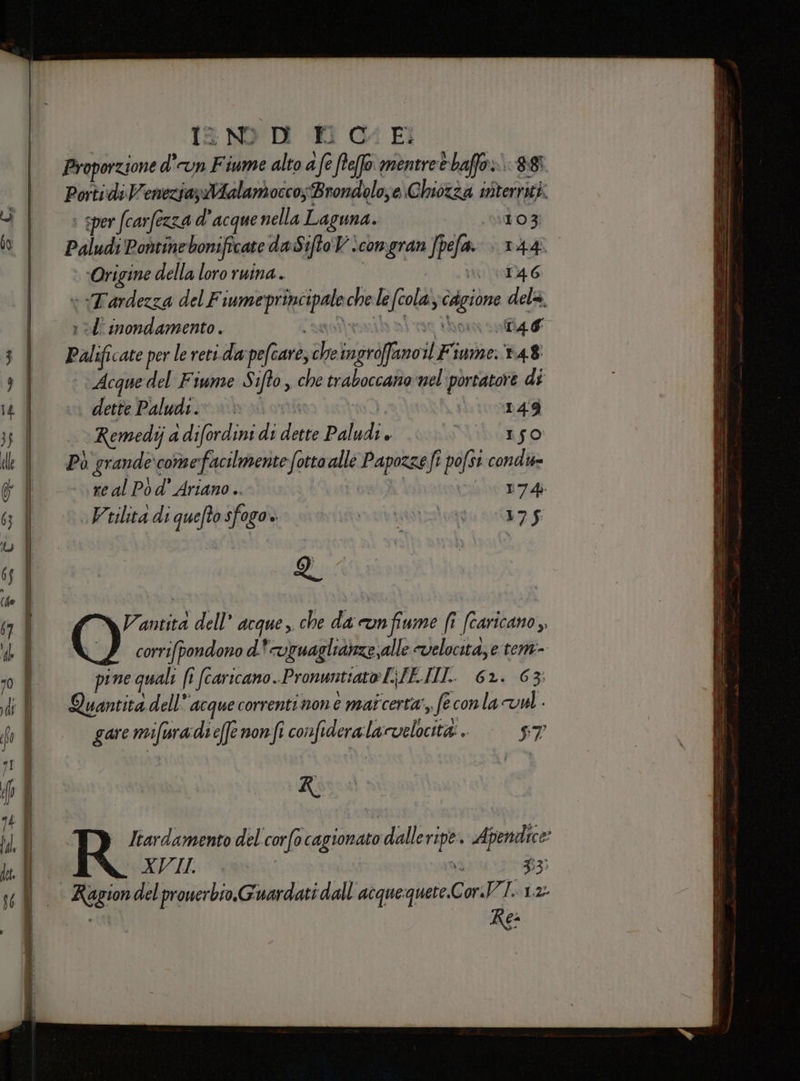 INDICE.
Proporzione d'vn Fiume alto a se stesso mentre è basso. 88
Porti di Venezia, Malamocco, Brondolo, e Chiozza interriti.
per scarsezza d'acque nella Laguna. 103
Paludi Pontine bonificate da Sisto V. con gran spesa. 144
Origine della loro ruina. 146
Tardezza del Fiume principale che le scola, cagione del-
l'inondamento. 146
Palificate per le reti da pescare, che ingrossano il Fiume. 148
Acque del Fiume Sisto, che traboccano nel portatore di
dette Paludi. 149
Remedij a disordini di dette Paludi. 150
Pò grande come facilmente sotto alle Papozze si possi condu-
re al Pò d'Ariano. 174
Vtilità di questo sfogo. 175
Q
QVantità dell'acque, che da vn fiume si scaricano,
corrispondono d'vguaglianze, alle velocità, e tem-
pi ne quali si scaricano. Pronuntiato I. E III. 62. 63
Quantità dell'acque correnti non è mai certa, se con la vul-
gare misura di esse non si considera la velocità. 57
R
RItardamento del corso cagionato dalle ripe. Apendice
XVII. 33
Ragion del prouerbio. Guardati dall'acque quete. Cor. VI. 12
Re-